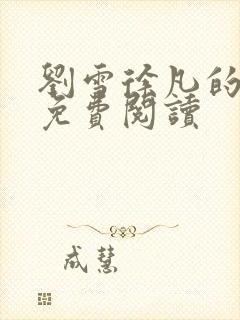 劉雪徐凡的
免費閱讀
成慧